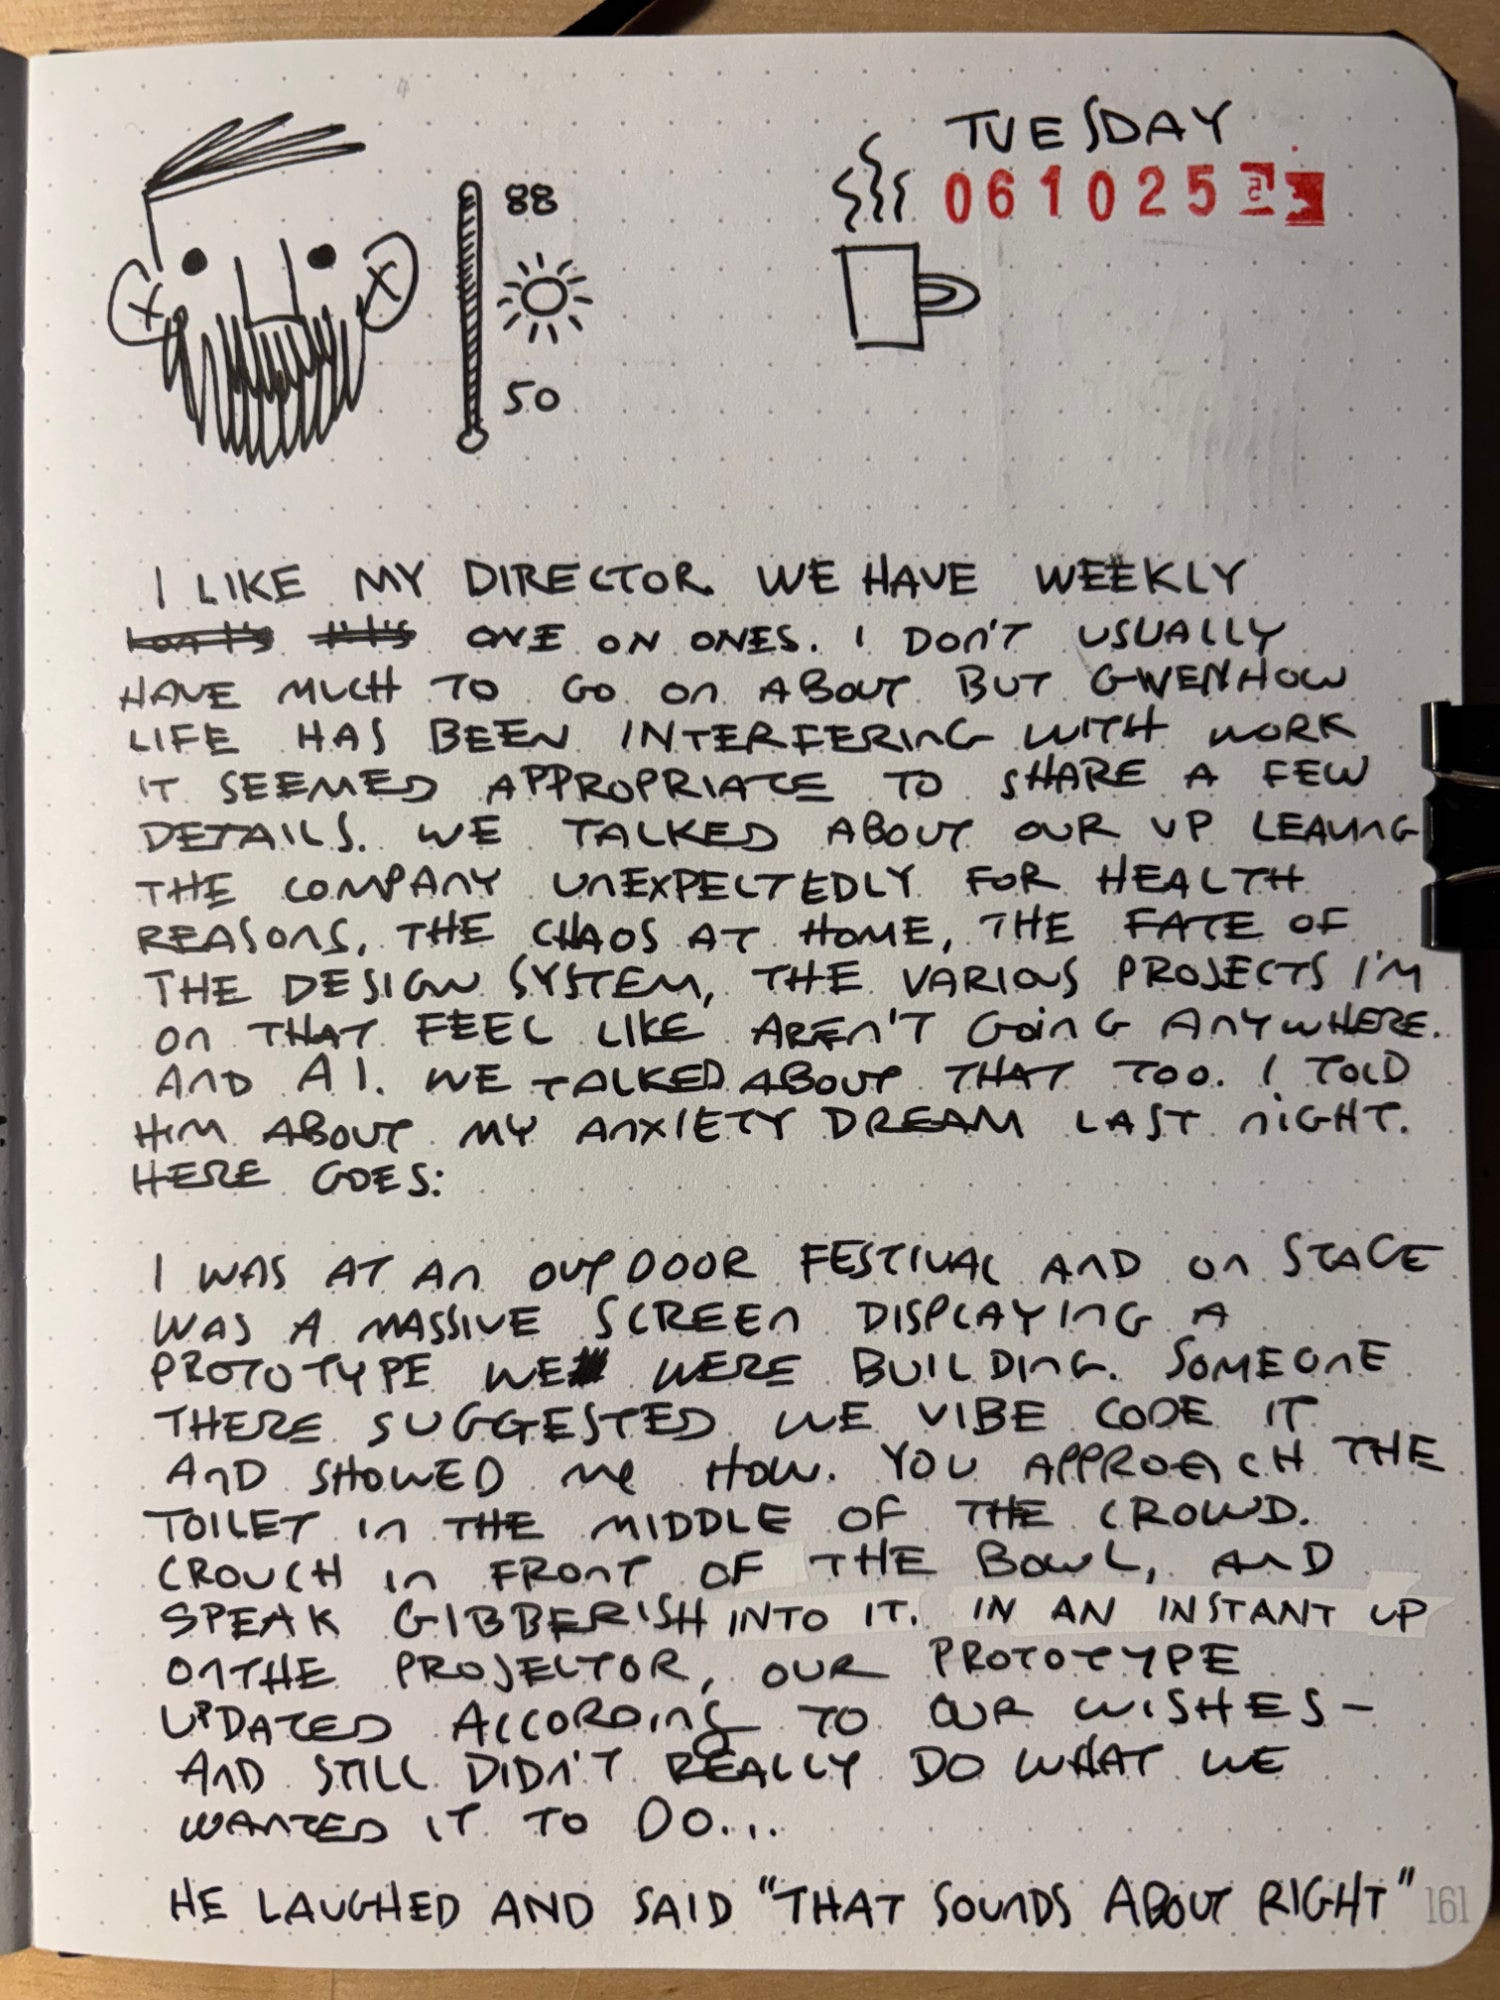 TUESDAY
061025
88
50
I LIKE MY DIRECTOR. WE HAVE WEEKLY
ONE ON ONES. I DON'T USUALLY
HAVE MUCH TO GO ON ABOUT BUT GWENHOW
LIFE HAS BEEN INTERFERING WITH WORK
IT SEEMED APPROPRIATE TO SHARE A FEW
DETAILS. WE TALKED ABOUT OUR VP LEAVING
THE COMPANY UNEXPECTEDLY FOR HEALTH
REASONS, THE CHAOS AT HOME, THE FATE OF
THE DESIGN SYSTEM, THE VARIOUS PROJECTS I'M
ON THAT FEEL LIKE AREN'T GOING ANYWHERE.
AND AI. WE TALKED ABOUT THAT TOO. I TOLD
HIM ABOUT MY ANXIETY DREAM LAST NIGHT.
HERE GOES:
I WAS AT AN OUTDOOR FESTIVAL AND ON STAGE
WAS A MASSIVE SCREEN DISPLAYING A
PROTOTYPE WE WERE BUILDING. SOMEONE
THERE SUGGESTED WE VIBE CODE IT
AND SHOWED ME HOW. YOU APPROACH THE
TOILET IN THE MIDDLE OF THE CROWD.
CROUCH IN FRONT OF THE BOWL, AND
SPEAK GIBBERISH INTO IT. IN AN INSTANT UP
ON THE PROJECTOR, OUR PROTOTYPE
UPDATED ACCORDING TO OUR WISHES-
AND STILL DIDN'T REALLY DO WHAT WE
WANTED IT TO DO...
HE LAUGHED AND SAID "THAT SOUNDS ABOUT RIGHT"
161